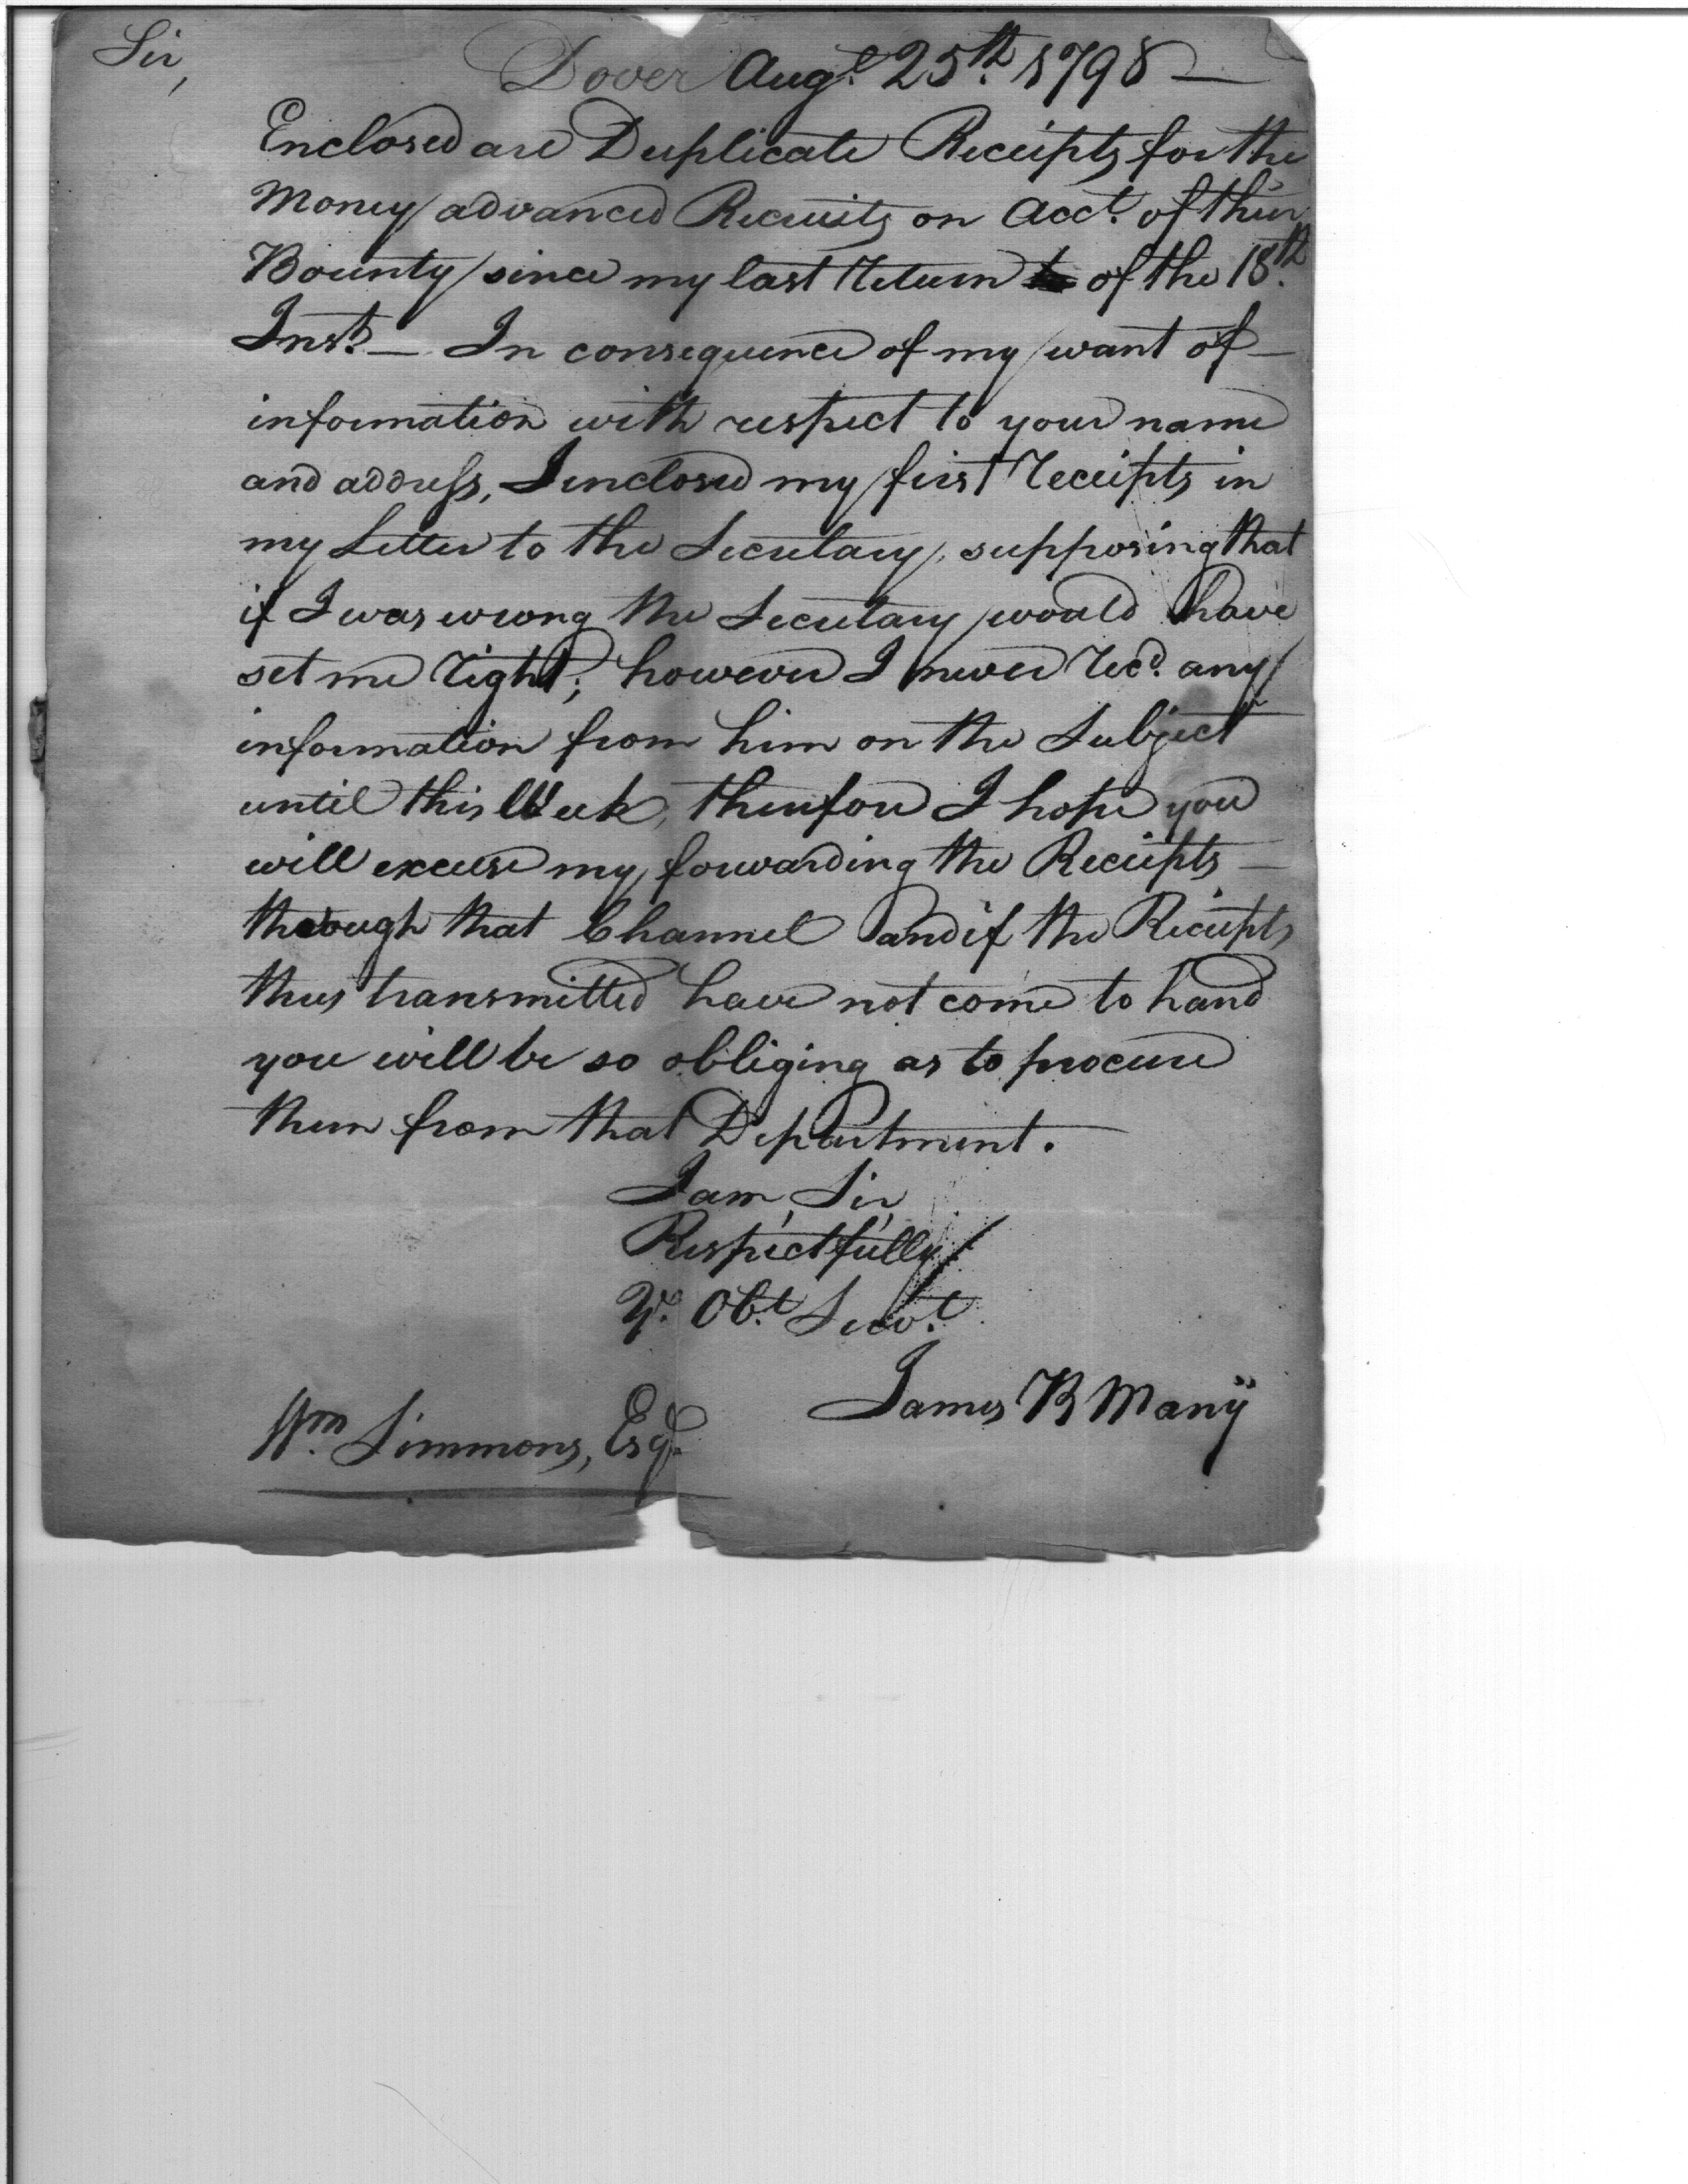 Sir,
Dover Augt. 25th. 1798 —
Enclosed are Duplicate Receipts for the
Money advanced Recruits on Acct. of their
Bounty since my last Return of the 18th.
Inst. — In consequence of my want of —
information with respect to your name
and address, I enclosed my first Receipts in
my Letter to the Secretary, supposing that
if I was wrong the Secretary would have
set me right; however I never Recd. any
information from him on the Subject
until this Week, therefore I hope you
will excuse my forwarding the Receipts —
through that Channel and if the Receipts
thus transmitted have not come to hand
you will be so obliging as to procure
them from that Department.
I am, Sir,
Respectfully
Yr. Obt. Servt.
James B Many
Wm. Simmons, Esqr.